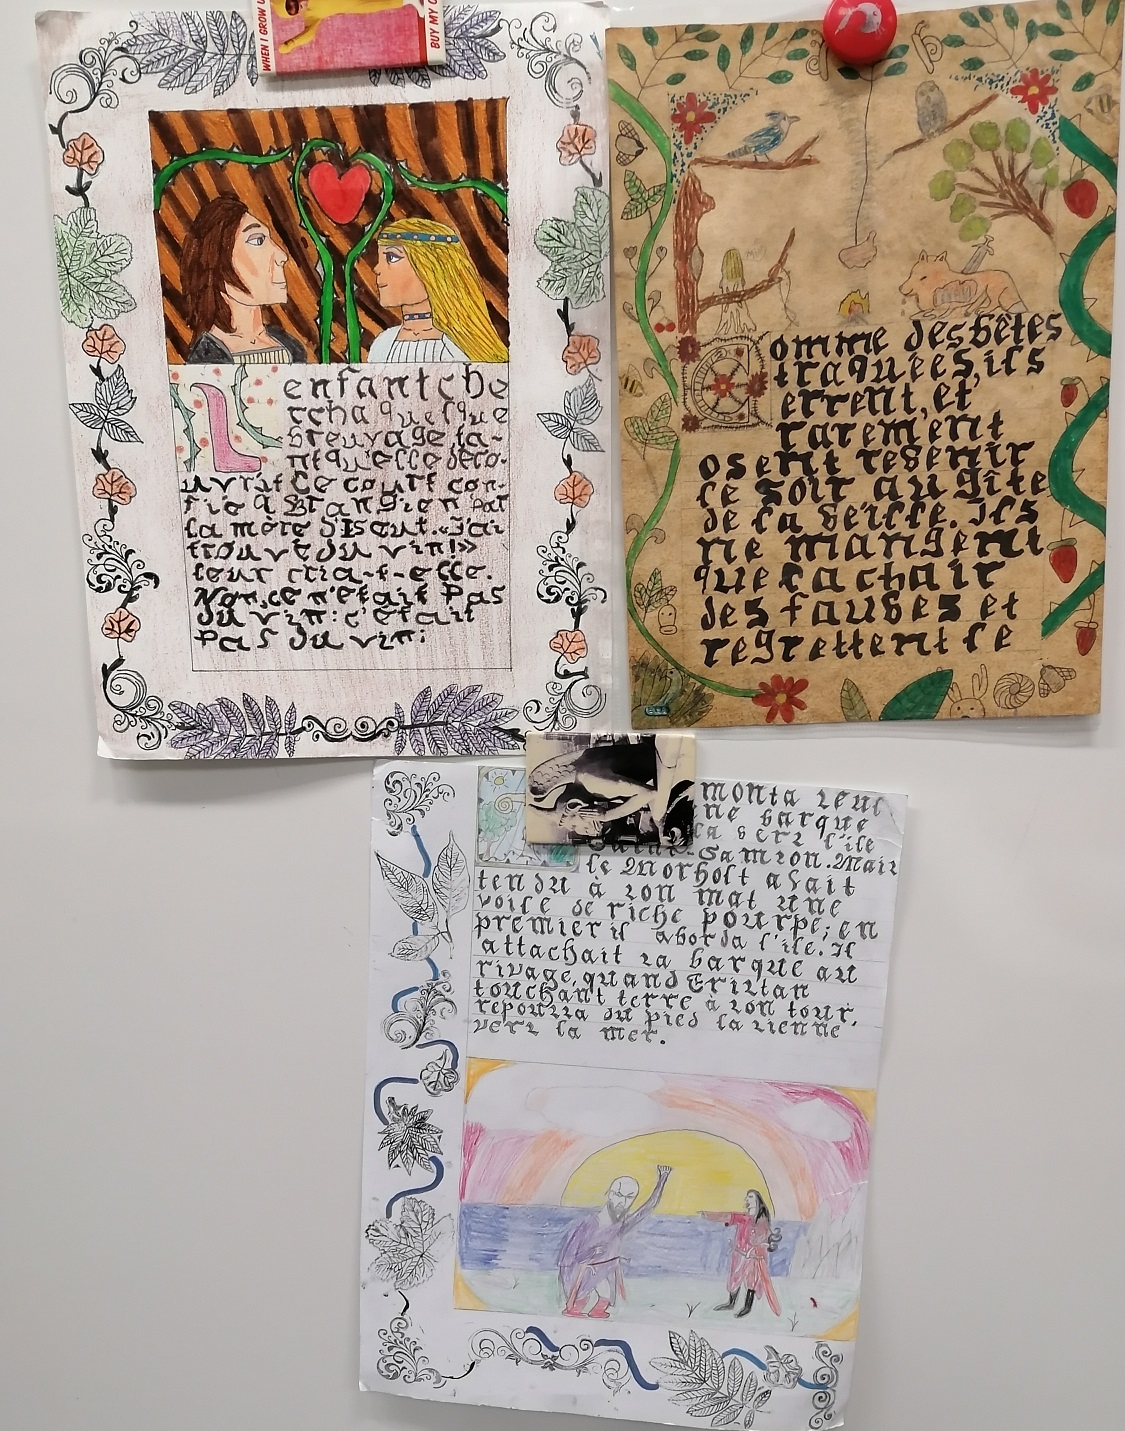 WHEN I GROW
BUY MY
L enfant che
rcha quelque
breuvage, ta-
nt qu'elle déco-
uvrit ce court con-
fié à Brangien par
la mère d'Iseut. «J'ai
trouvé du vin!»
leur cria-t-elle.
Non, ce n'était pas
du vin: c'était
pas du vin:
Comme des bêtes
traquées, ils
errent, et
rarement
osent revenir
le soir au gîte
de la veille. Ils
ne mangent
que la chair
des fauves et
regrettent le
monta seul
ne barque
la vers l'île
Saint-Samson. Mais
le Morholt avait
tendu à son mat une
voile de riche pourpe; en
premier il aborda l'île. Il
attachait sa barque au
rivage, quand Tristan
touchant terre à son tour,
repoussa du pied la sienne
vers la mer.